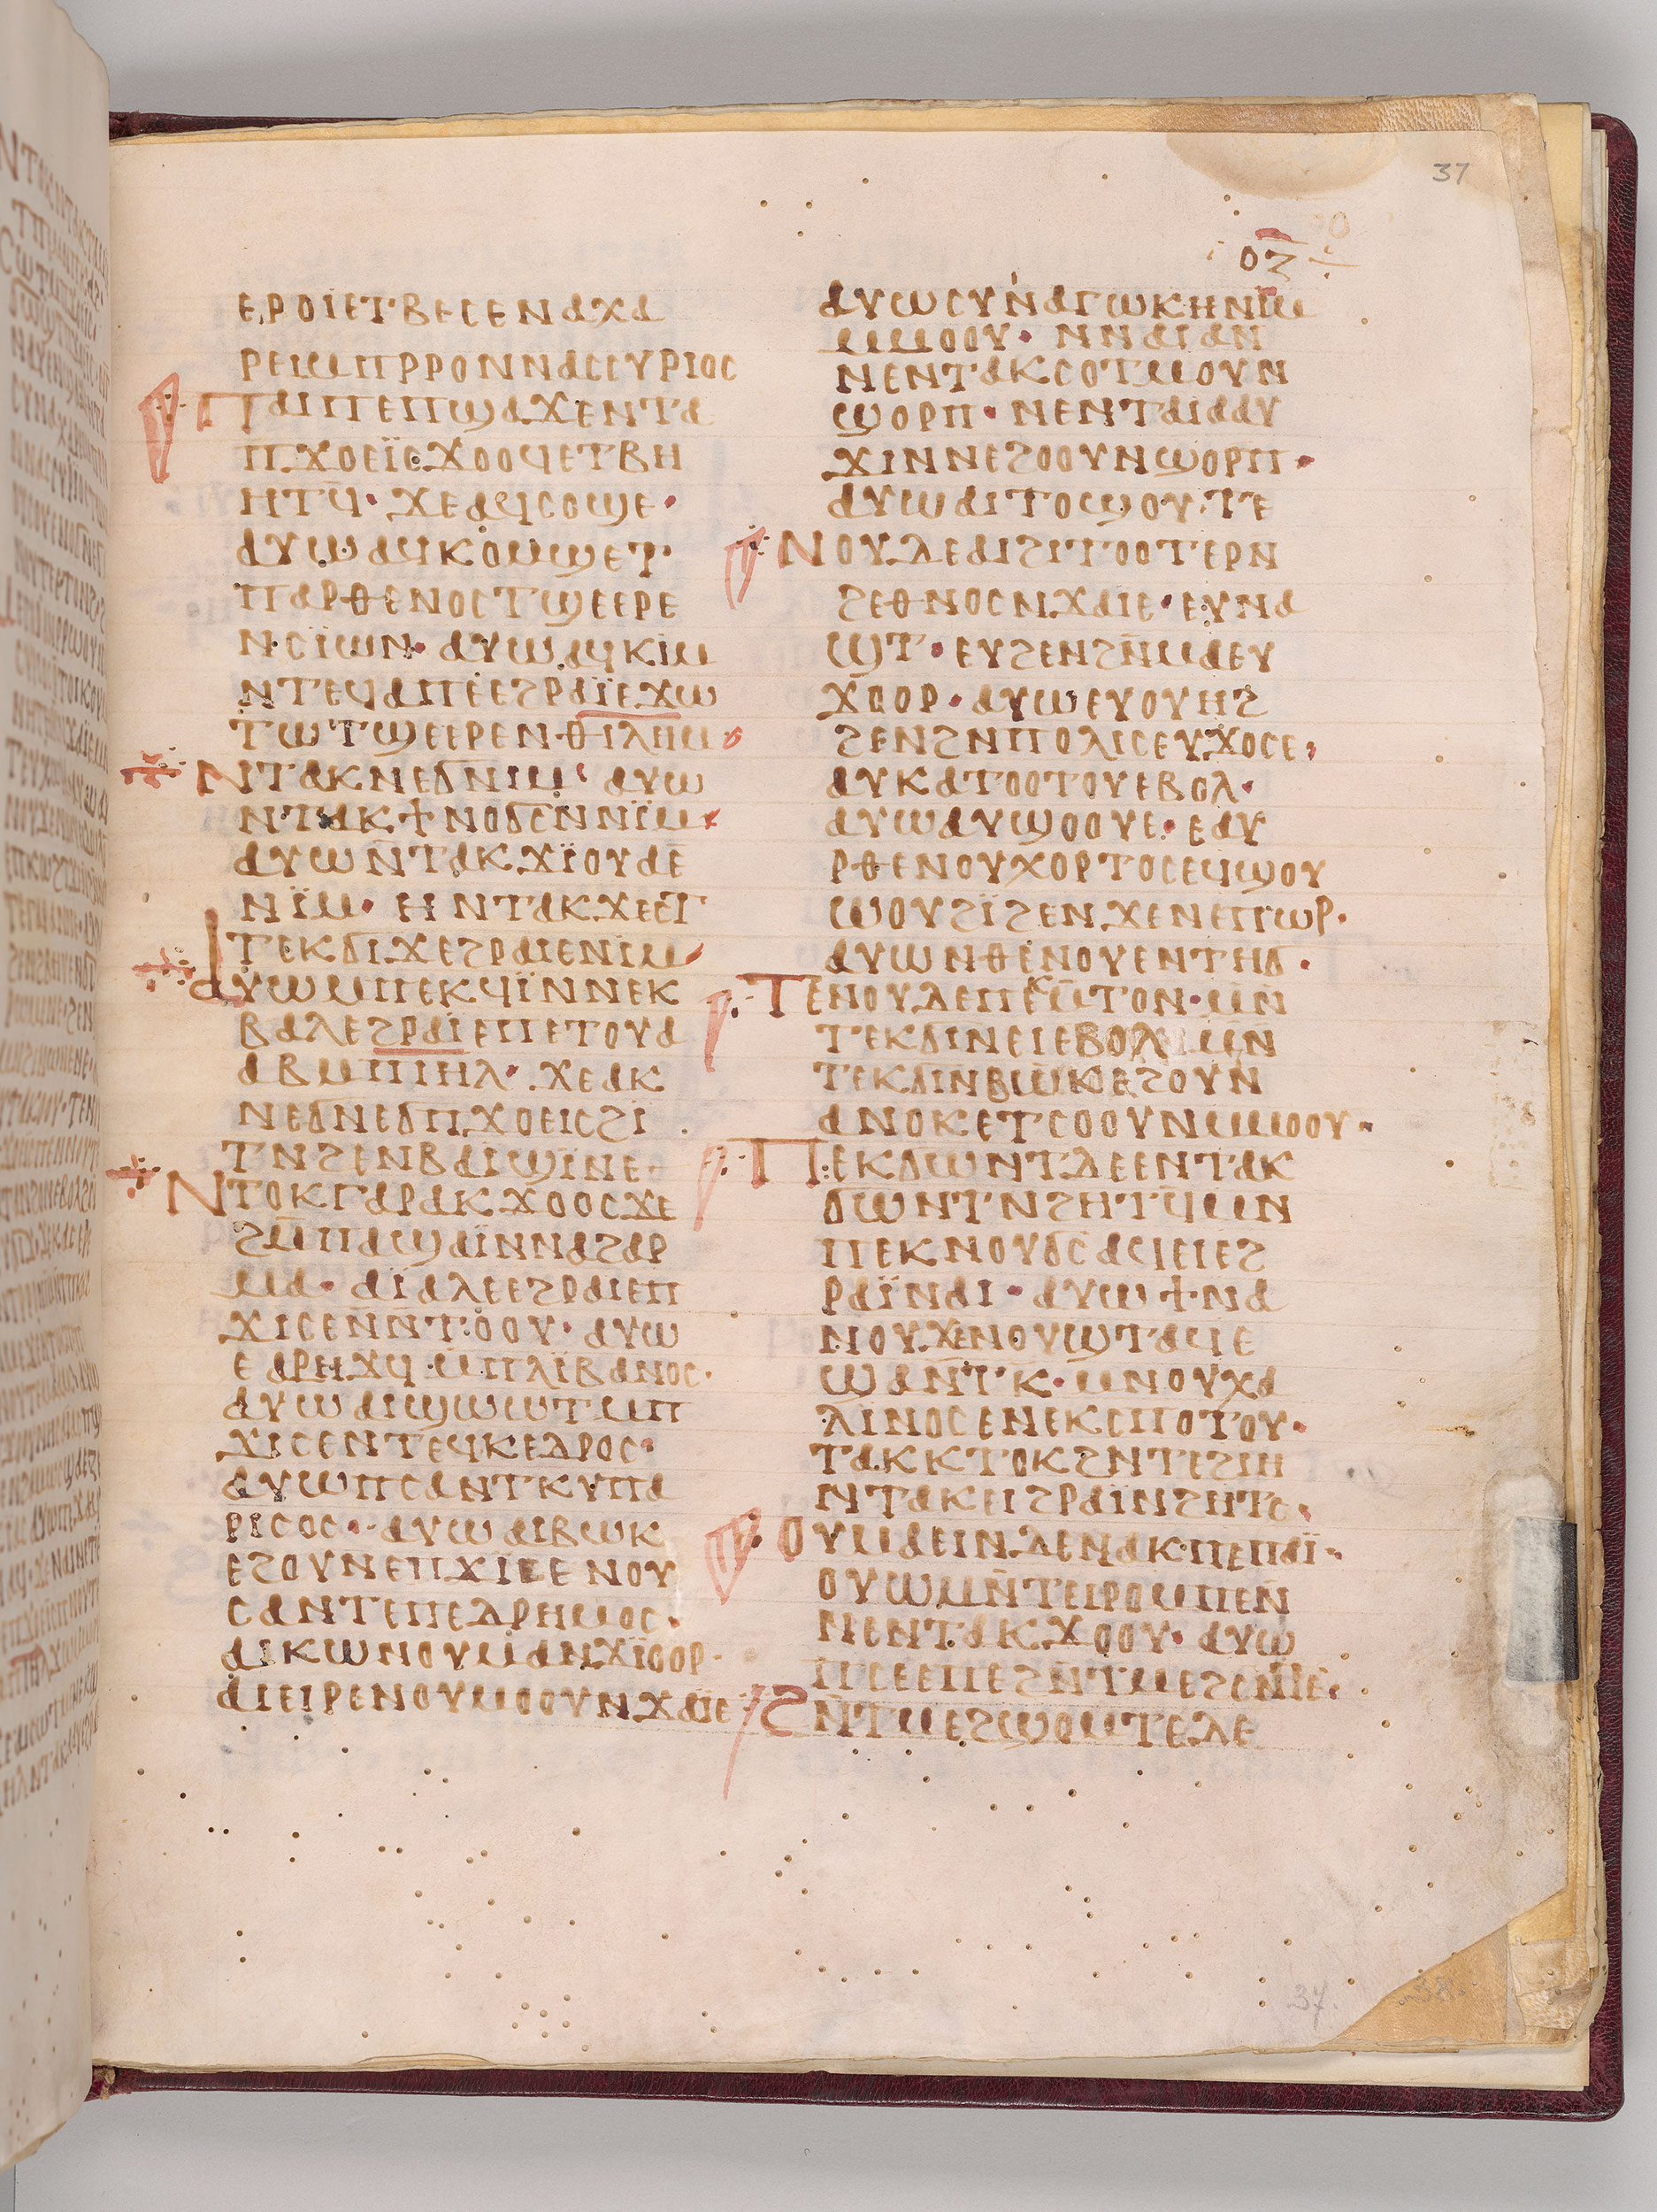 37
ⲟⲍ
ⲉⲣⲟⲓⲉⲧⲃⲉⲥⲉⲛⲁⲭⲁ
ⲣⲉⲓⲙⲡⲣⲣⲟⲛⲛⲁⲥⲥⲩⲣⲓⲟⲥ
ⲡⲁⲓⲡⲉⲡϣⲁϫⲉⲛⲧⲁ
ⲡϫⲟⲉⲓⲥϫⲟⲟϥⲉⲧⲃⲏ
ⲏⲧϥ· ϫⲉⲁϥⲥⲟϣⲉ·
ⲁⲩⲱⲁϥⲕⲟⲙϣⲉⲧ
ⲡⲁⲣⲑⲉⲛⲟⲥⲧϣⲉⲉⲣⲉ
ⲛⲥⲓ̈ⲱⲛ· ⲁⲩⲱⲁϥⲕⲓⲙ
ⲛⲧⲉϥⲁⲡⲉⲉϩⲣⲁⲓ̈ⲉϫⲱ
ⲧⲱⲧϣⲉⲉⲣⲉⲛⲑⲓⲗⲏⲙ·
ⲛⲧⲁⲕⲛⲉϭⲛⲓⲙ· ⲁⲩⲱ
ⲛⲧⲁⲕϯⲛⲟϭⲥ̄ⲛⲛⲓ̈ⲙ·
ⲁⲩⲱⲛ̄ⲧⲁⲕϫⲓ̈ⲟⲩⲁⲉ
ⲛⲓ̈ⲙ· ⲏ ⲛⲧⲁⲕϫⲉⲥⲧ
ⲧⲉⲕϭⲓϫⲉϩⲣⲁⲓⲉⲛⲓⲙ·
ⲁⲩⲱⲙⲡⲉⲕϥⲓ̈ⲛⲛⲉⲕ
ⲃⲁⲗⲉϩⲣⲁⲓ̈ⲉⲡⲉⲧⲟⲩⲁ
ⲁⲃⲙⲡⲓⲏⲗ· ϫⲉⲁⲕ
ⲛⲉϭⲛⲉϭⲡϫⲟⲉⲓⲥϩⲓ
ⲧⲛϩⲉⲛⲃⲁⲓϣⲓⲛⲉ·
ⲛⲧⲟⲕⲅⲁⲣⲁⲕϫⲟⲟⲥϫⲉ
ϩⲙ̄ⲡⲁϣⲁⲓ̈ⲛⲛⲁϩⲁⲣ
ⲙⲁ· ⲁⲓ̈ⲁⲗⲉⲉϩⲣⲁⲓⲉⲡ
ϫⲓⲥⲉⲛ̄ⲛⲧⲟⲟⲩ· ⲁⲩⲱ
ⲉⲁⲣⲏϫϥ ⲙ̄ⲡⲗⲓⲃⲁⲛⲟⲥ·
ⲁⲩⲱⲁⲓϣⲱⲱⲧⲙⲡ
ϫⲓⲥⲉⲛⲧⲉϥⲕⲉⲇⲣⲟⲥ·
ⲁⲩⲱⲡⲥⲁⲛⲧⲕⲩⲡⲁ
ⲣⲓⲥⲟⲥ· ⲁⲩⲱⲁⲓⲃⲱⲕ
ⲉϩⲟⲩⲛⲉⲡϫⲓⲥⲉⲛⲟⲩ
ⲥⲁⲛⲧⲉⲡⲉⲇⲣⲏⲙⲟⲥ·
ⲁⲓⲕⲱⲛⲟⲩⲙⲁⲛϫⲓ̈ⲟⲟⲣ·
ⲁⲓⲉⲓⲣⲉⲛⲟⲩⲙⲟⲟⲩⲛϫⲁⲓ̈ⲉ
ⲁⲩⲱⲥⲩⲛⲁⲅⲱⲕⲏⲛⲓⲙ
ⲙⲙⲟⲟⲩ· ⲛⲛⲁⲓⲁⲛ
ⲛⲉⲛⲧⲁⲕⲥⲟⲧⲙⲟⲩⲛ
ϣⲟⲣⲡ· ⲛⲉⲛⲧⲁⲓⲁⲁⲩ
ϫⲓⲛⲛⲉϩⲟⲟⲩⲛϣⲟⲣⲡ·
ⲁⲩⲱⲁⲓⲧⲟϣⲟⲩⲧⲉ
ⲛⲟⲩⲇⲉⲁⲓϩⲓⲧⲟⲟⲧⲉⲣⲛ
ϩⲉⲑⲛⲟⲥⲛϫⲁⲓⲉ· ⲉⲩⲛⲁ
ϣⲧ· ⲉⲩϩⲉⲛϩⲛ̄ⲙⲁⲉⲩ
ϫⲟⲟⲣ· ⲁⲩⲱⲉⲩⲟⲩⲏϩ
ϩⲉⲛϩⲛⲡⲟⲗⲓⲥⲉⲩϫⲟⲥⲉ·
ⲁⲩⲕⲁⲧⲟⲟⲧⲟⲩⲉⲃⲟⲗ·
ⲁⲩⲱⲁⲩϣⲟⲟⲩⲉ· ⲉⲁⲩ
ⲣⲑⲉⲛⲟⲩⲭⲟⲣⲧⲟⲥⲉϥϣⲟⲩ
ⲱⲟⲩϩⲓ̈ϩⲉⲛϫⲉⲛⲉⲡⲱⲣ·
ⲁⲩⲱⲛⲑⲉⲛⲟⲩⲉⲛⲧⲏϭ·
ⲧⲉⲛⲟⲩⲇⲉⲡⲉⲕⲙ̄ⲧⲟⲛ· ⲙⲛ
ⲧⲉⲕϭⲓⲛⲉⲓⲉⲃⲟⲗ ⲙⲛ
ⲧⲉⲕϭⲓⲛⲃⲱⲕⲉϩⲟⲩⲛ
ⲁⲛⲟⲕⲉⲧⲥⲟⲟⲩⲛⲙⲙⲟⲟⲩ·
ⲡⲉⲕϭⲱⲛⲧⲇⲉⲉⲛⲧⲁⲕ
ϭⲱⲛⲧⲛϩⲏⲧϥⲙⲛ
ⲡⲉⲕⲛⲟⲩϭⲥⲁⲥⲓⲉⲓⲉϩ
ⲣⲁⲓ̈ⲛⲁⲓ· ⲁⲩⲱϯⲛⲁ
ⲛⲟⲩϫⲉⲛⲟⲩϣⲧⲁϥⲉ
ϣⲁⲛⲧⲕ· ⲙⲛⲟⲩⲭⲁ
ⲗⲓⲛⲟⲥⲉⲛⲉⲕⲥⲡⲟⲧⲟⲩ·
ⲧⲁⲕⲕⲧⲟⲕϩⲛⲧⲉϩⲓⲏ
ⲛⲧⲁⲕⲉⲓϩⲣⲁⲓ̈ⲛϩⲏⲧⲥ·
ⲟⲩⲙⲁⲉⲓⲛⲇⲉⲛⲁⲕⲡⲉⲡⲁⲓ̈·
ⲟⲩⲱⲙⲛ̄ⲧⲉⲓⲣⲟⲙⲡⲉⲛ
ⲛⲉⲛⲧⲁⲕϫⲟⲟⲩ· ⲁⲩⲱ
ⲡⲥⲉⲉⲡⲉϩⲛ̄ⲧⲙⲉϩⲥⲛ̄ⲧⲉ·
ϩⲛ̄ⲧⲙⲉϩϣⲟⲙⲧⲉⲇⲉ
37.
38.